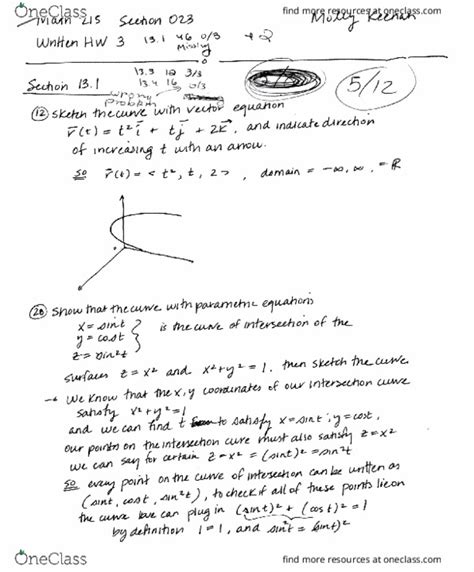 OneClass
find more resources at oneclass.com
Math 215 Section 023
Molly Keenan
Written HW 3 13.1 46 0/3 +2
Missing
13.3 12 3/3
Section 13.1 13.4 16 0/3
wrong problem
5/12
(12) Sketch the curve with vector equation
r(t) = t² i + t j + 2k, and indicate direction
of increasing t with an arrow.
so r(t) = < t², t, 2 >, domain = -∞, ∞, = ℝ
(28) Show that the curve with parametric equations
x = sint
y = cost } is the curve of intersection of the
z = sin²t
surfaces z = x² and x² + y² = 1. then sketch the curve.
→ We know that the x, y coordinates of our intersection curve
satisfy x² + y² = 1
and we can find t to satisfy x = sint, y = cost,
our points on the intersection cure must also satisfy z = x²
we can say for certain z = x² = (sint)² = sin²t
so every point on the curve of intersection can be written as
(sint, cost, sin²t), to check if all of these points lie on
the curve we can plug in (sint)² + (cost)² = 1
by definition 1 = 1, and sin²t = (sint)²
OneClass
find more resources at oneclass.com